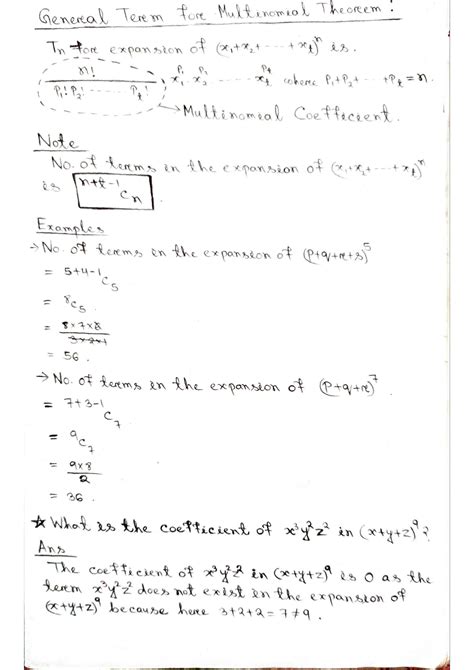 General Term for Multinomial Theorem:
Tn for expansion of (x₁+x₂+ ⋯ +xₜ)ⁿ is.
n! / P₁! P₂! ⋯ Pₜ! x₁^P₁ x₂^P₂ ⋯ xₜ^Pₜ where P₁+P₂+ ⋯ +Pₜ = n.
→ Multinomial Coefficient.
Note
No. of terms in the expansion of (x₁+x₂+ ⋯ +xₜ)ⁿ
is ⁿ⁺ᵗ⁻¹Cₙ
Examples
→ No. of terms in the expansion of (p+q+r+s)⁵
= ⁵⁺⁴⁻¹C₅
= ⁸C₅
= 8×7×6 / 3×2×1
= 56.
→ No. of terms in the expansion of (p+q+r)⁷
= ⁷⁺³⁻¹C₇
= ⁹C₇
= 9×8 / 2
= 36.
★ What is the coefficient of x³y²z² in (x+y+z)⁹?
Ans
The coefficient of x³y²z² in (x+y+z)⁹ is 0 as the
term x³y²z² does not exist in the expansion of
(x+y+z)⁹ because here 3+2+2=7≠9.